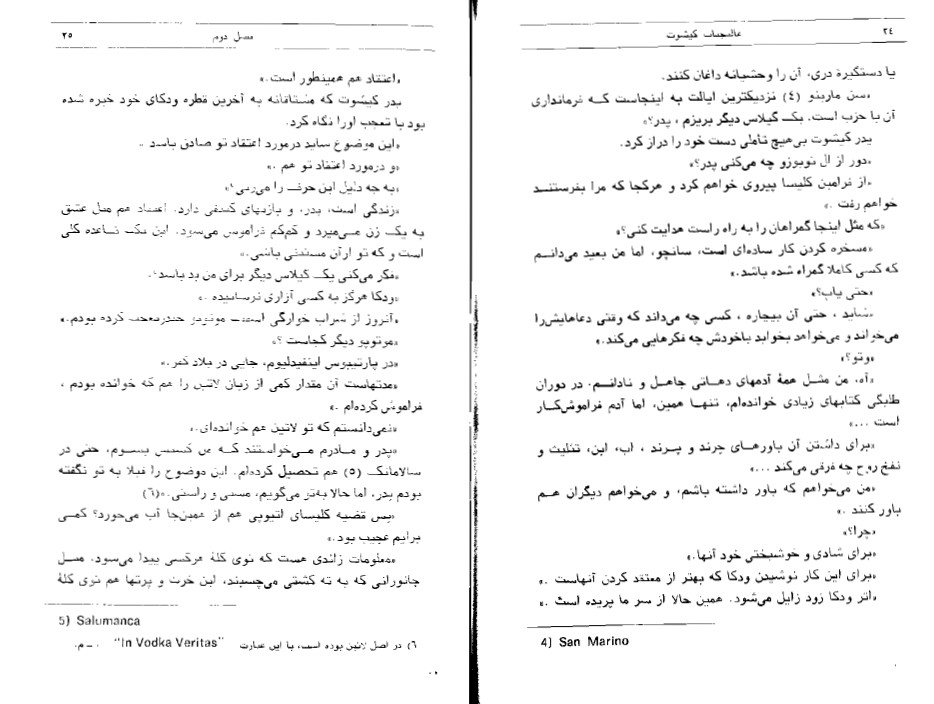 ٢٤
عالیجناب کیشوت
یا دستگیرهٔ دری، آن را وحشیانه داغان کنند.
«سن مارینو (٤) نزدیکترین ایالت به اینجاست کـه فرمانداری
آن با حزب است. یک گیلاس دیگر بریزم ، پدر؟»
پدر کیشوت بی‌هیچ تاملی دست خود را دراز کرد.
«دور از ال توبوزو چه می‌کنی پدر؟»
«از فرامین کلیسا پیروی خواهم کرد و هرکجا که مرا بفرستنـد
خواهم رفت .»
«که مثل اینجا گمراهان را به راه راست هدایت کنی؟»
«مسخره کردن کار ساده‌ای است، سانچو، اما من بعید می‌دانـم
که کسی کاملا گمراه شده باشد.»
«حتی پاپ؟»
«شاید ، حتی آن بیچاره ، کسی چه می‌داند که وقتی دعاهایش‌را
می‌خواند و می‌خواهد بخوابد باخودش چه فکرهایی می‌کند.»
«وتو؟»
«آه، من مثـل همهٔ آدمهای دهـاتی جاهـل و نادانـم. در دوران
طلبگی کتابهای زیادی خوانده‌ام، تنهـا همین، اما آدم فراموش‌کـار
است ...»
«برای داشتن آن باورهـای چرند و پـرند ، اب، ابن، تثلیث و
نفخ روح چه فرقی می‌کند ...»
«من می‌خواهم که باور داشته باشم، و می‌خواهم دیگران هـم
باور کنند .»
«چرا؟»
«برای شادی و خوشبختی خود آنها.»
«برای این کار نوشیدن ودکا که بهتر از معتقد کردن آنهاست .»
«اثر ودکا زود زایل می‌شود. همین حالا از سر ما پریده است .»
4) San Marino
فصل دوم
٢٥
«اعتقاد هم همینطور است.»
پدر کیشوت که مشتاقانه به آخرین قطره ودکای خود خیره شده
بود با تعجب اورا نگاه کرد.
«این موضوع شاید درمورد اعتقاد تو صادق باشد .»
«و درمورد اعتقاد تو هم .»
«به چه دلیل این حرف را می‌زنی؟»
«زندگی است، پدر، و بازیهای کثیفی دارد. اعتقاد هم مثل عشق
به یک زن مـی‌میرد و کم‌کم فراموش می‌شود. این یک قاعده کلی
است و که تو ازآن مستثنی باشی.»
«فکر می‌کنی یک گیلاس دیگر برای من بد باشد؟»
«ودکا هرگز به کسی آزاری نرسانیده .»
«آنروز از شراب خوارگی موتوپو کرده بودم.»
«موتوپو دیگر کجاست ؟»
«در پارتیبوس اینفیدلیوم، جایی در بلاد کفر.»
«مدتهاست آن مقدار کمی از زبان لاتین را هم که خوانده بودم ،
فراموش کرده‌ام .»
«نمی‌دانستم که تو لاتین هم خوانده‌ای.»
«پدر و مادرم مـی‌خواستند کـه من کشیش بشوم، حتی در
سالامانکـا (٥) هم تحصیل کرده‌ام. این موضوع را قبلا به تو نگفته
بودم پدر، اما حالا به‌تو می‌گویم، مستی و راستی.»(٦)
«پس قضیه کلیسای اتیوپی هم از همین‌جا آب می‌خورد؟ کمـی
برایم عجیب بود.»
«معلومات زائدی هست که توی کلهٔ هرکسی پیدا می‌شود. مثـل
جانورانی که به ته کشتی می‌چسبند، این خرت و پرتها هم توی کلهٔ
5) Salumanca
٦) در اصل لاتین بوده است، با این عبارت "In Vodka Veritas" . ـ م.